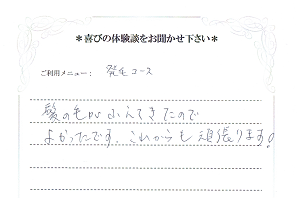 ＊喜びの体験談をお聞かせ下さい＊
ご利用メニュー： 発毛コース
髪の毛がふえてきたので
よかったです。これからも頑張ります!